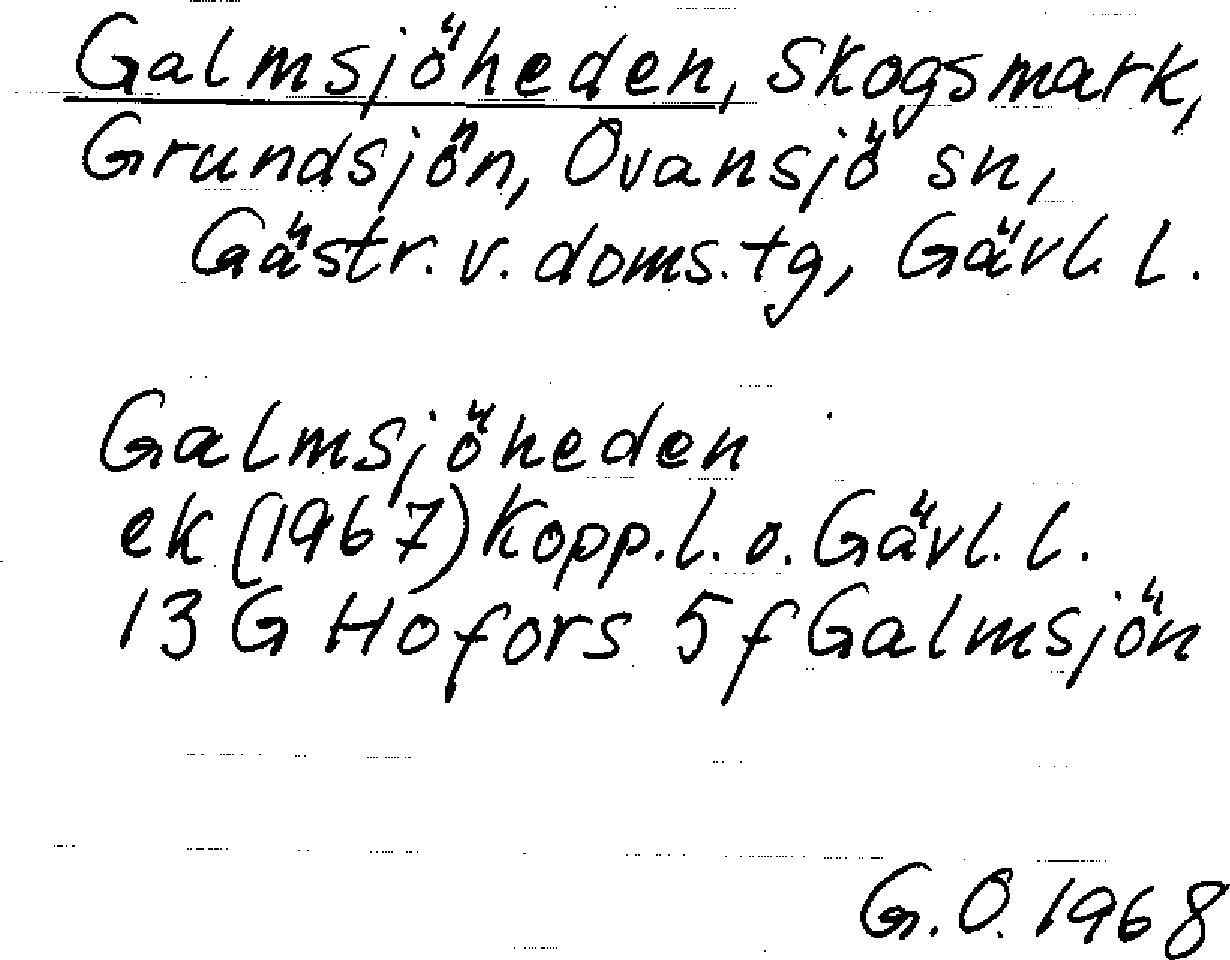 Galmsjöheden, skogsmark,
Grundsjön, Ovansjö sn,
Gästr. v. doms. tg, Gävl. l.
Galmsjöheden
ek (1967) Kopp. l. o. Gävl. l.
13 G Hofors 5 f Galmsjön
G. O. 1968